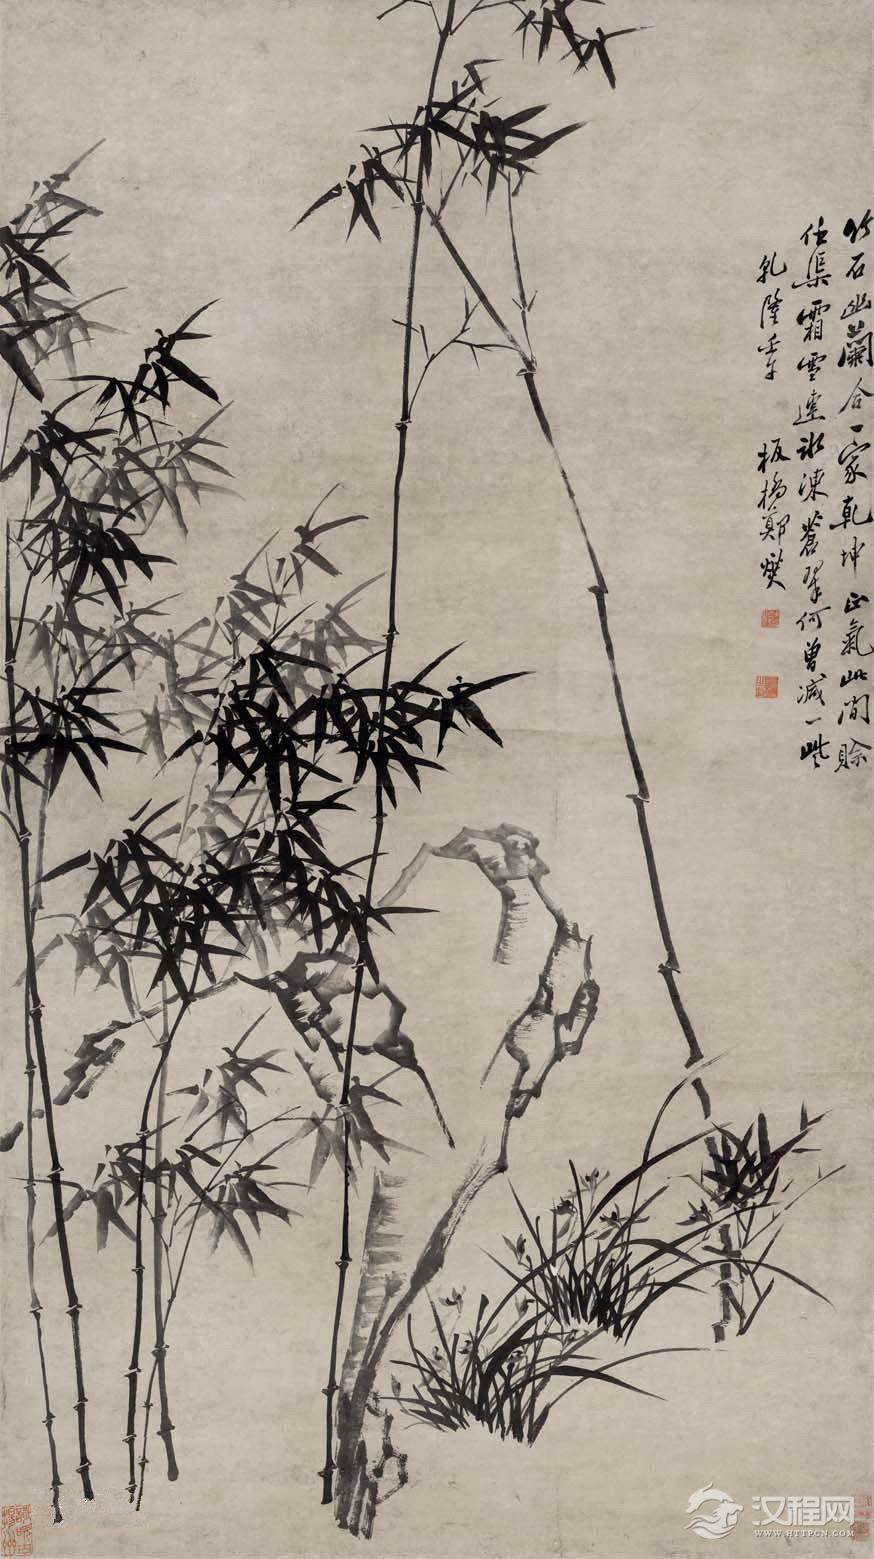 竹石幽蘭合一家乾坤正氣此間賒
任渠霜雪連冰凍蒼翠何曾減一些
乾隆壬午 板橋鄭燮
汉程网
WWW.HTTPCN.COM